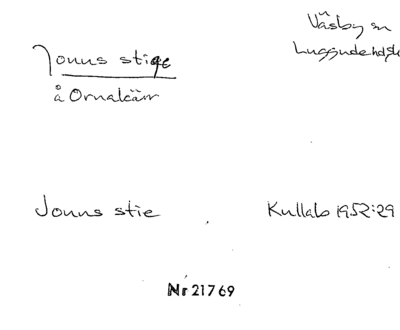 Väsby sn
Luggude hd
Jonns stige
å Ornakärr
Jonns stie
Kullabo 1952:29
Nr 21769